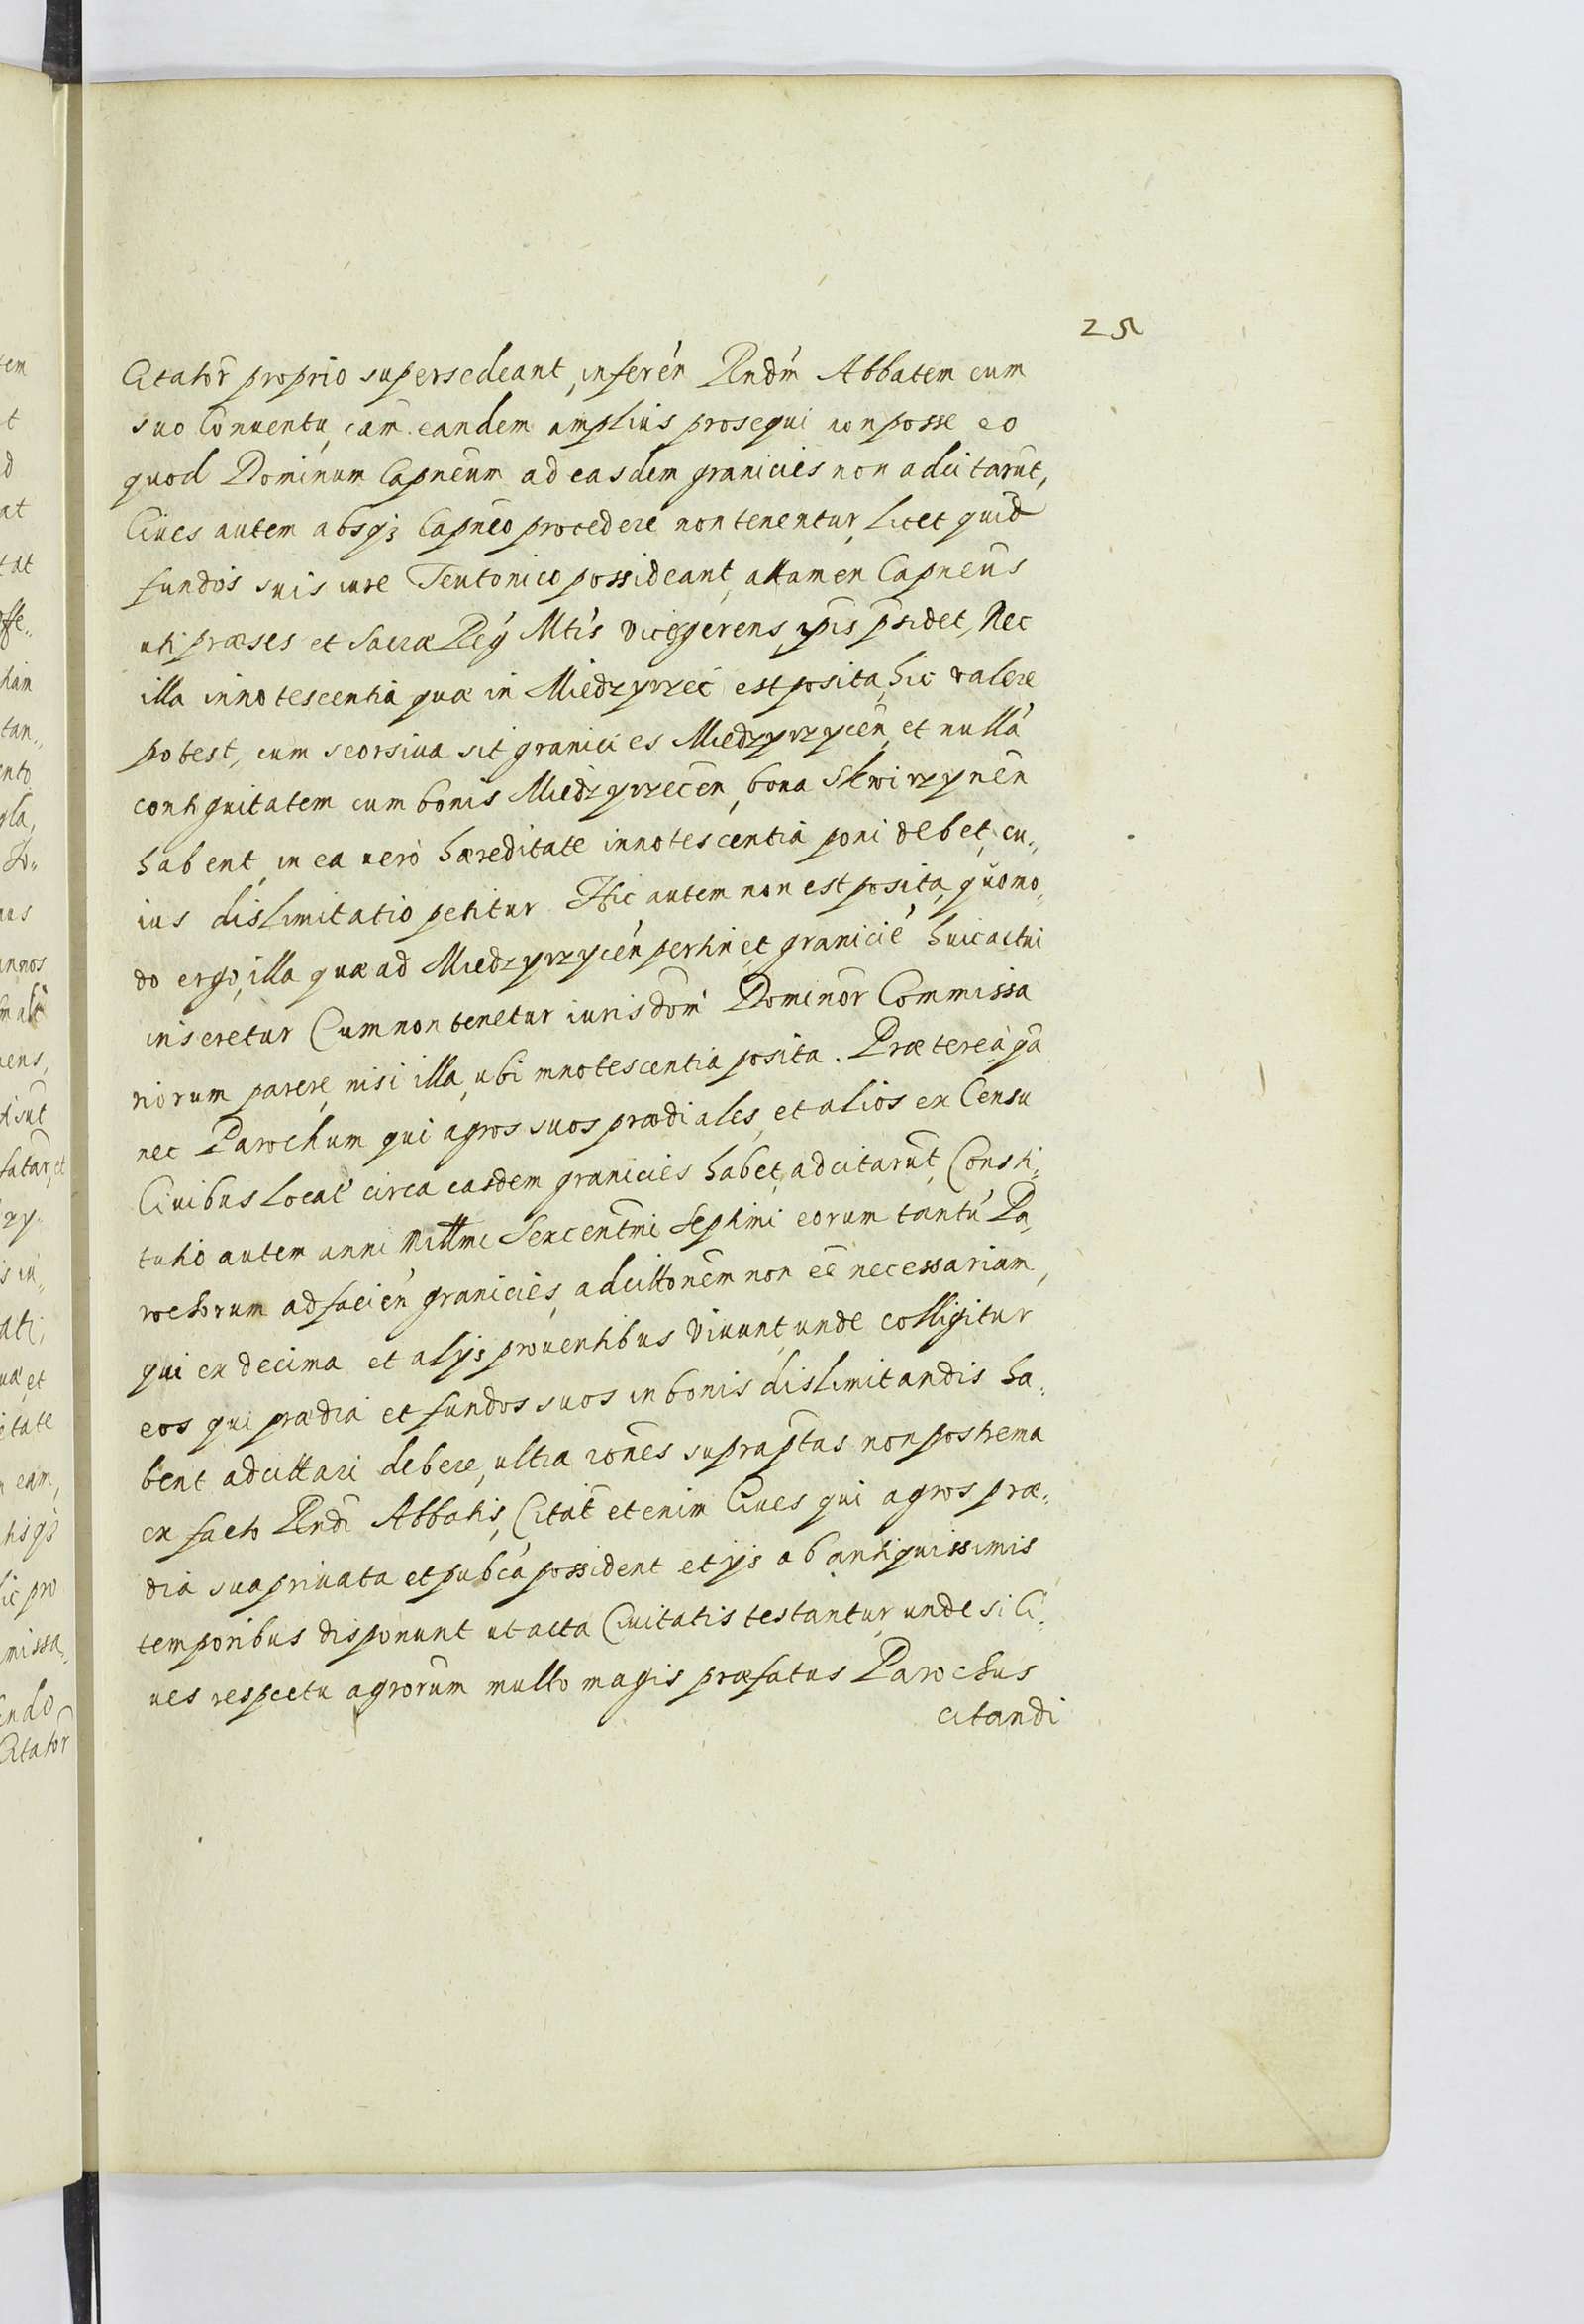 25
Citator̄ proprio supersedeant, inferen̄ Rndm̄ Abbatem cum
suo Conuentu, cam̄ eandem amplius prosequi non posse eo
quod Dominum Capneum̄ ad easdem granicies non adcitarūt,
Ciues autem absq3 Capneo procedere non tenentur, Licet quid
fundos suis iure Teutonico possideant, attamen Capneūs
uti præses et Sacræ Regꝭ Mtis vicesgerens, ipis psidet, Nec
illa innotescentia quæ in Miedzyrzec̄ est posita, hic valere
potest, cum seorsiua sit granicies Miedzyrzycen̄, et nullā
contiguitatem cum bonis Miedzyrzecēn, bona Skwirzynēn
habent, in ea uero hæreditate innotescentia poni debet, cu„
ius dislimitatio petitur. Hic autem non est posita, quomo„
do ergo, illa quæ ad Miedzyrzycēn pertinet granicie huic actui
inseretur Cum non tenetur iurisdom̄ Dominor̄ Commissa
riorum parere, nisi illa, ubi innotescentia posita. Præterea qā
nec Parochum qui agros suos prædiales, et alios ex Censu
Ciuibus Locat̄ circa easdem granicies habet, adcitarūt, Consti„
tutio autem anni Millmi Sexcentm̄i Septimi eorum tantū Pa„
rochorum ad facien̄ granicies, adcittonēm non eē necessariam,
qui ex decima et alijs prouentibus viuunt, unde colligitur
eos qui prædia et fundos suos in bonis dislimitandis ha„
bent adcittari debere, ultra rōnes suprap̄tas non postrema
ex facto Rndi Abbatis, Citat̄ etenim Ciues qui agros præ„
dia sua priuata et pub̄ca possident et ijs ab antiquissimis
temporibus disponunt ut acta Ciuitatis testantur, unde si Ci„
ues respectu agrorum multo magis præfatus Parochus
citandi